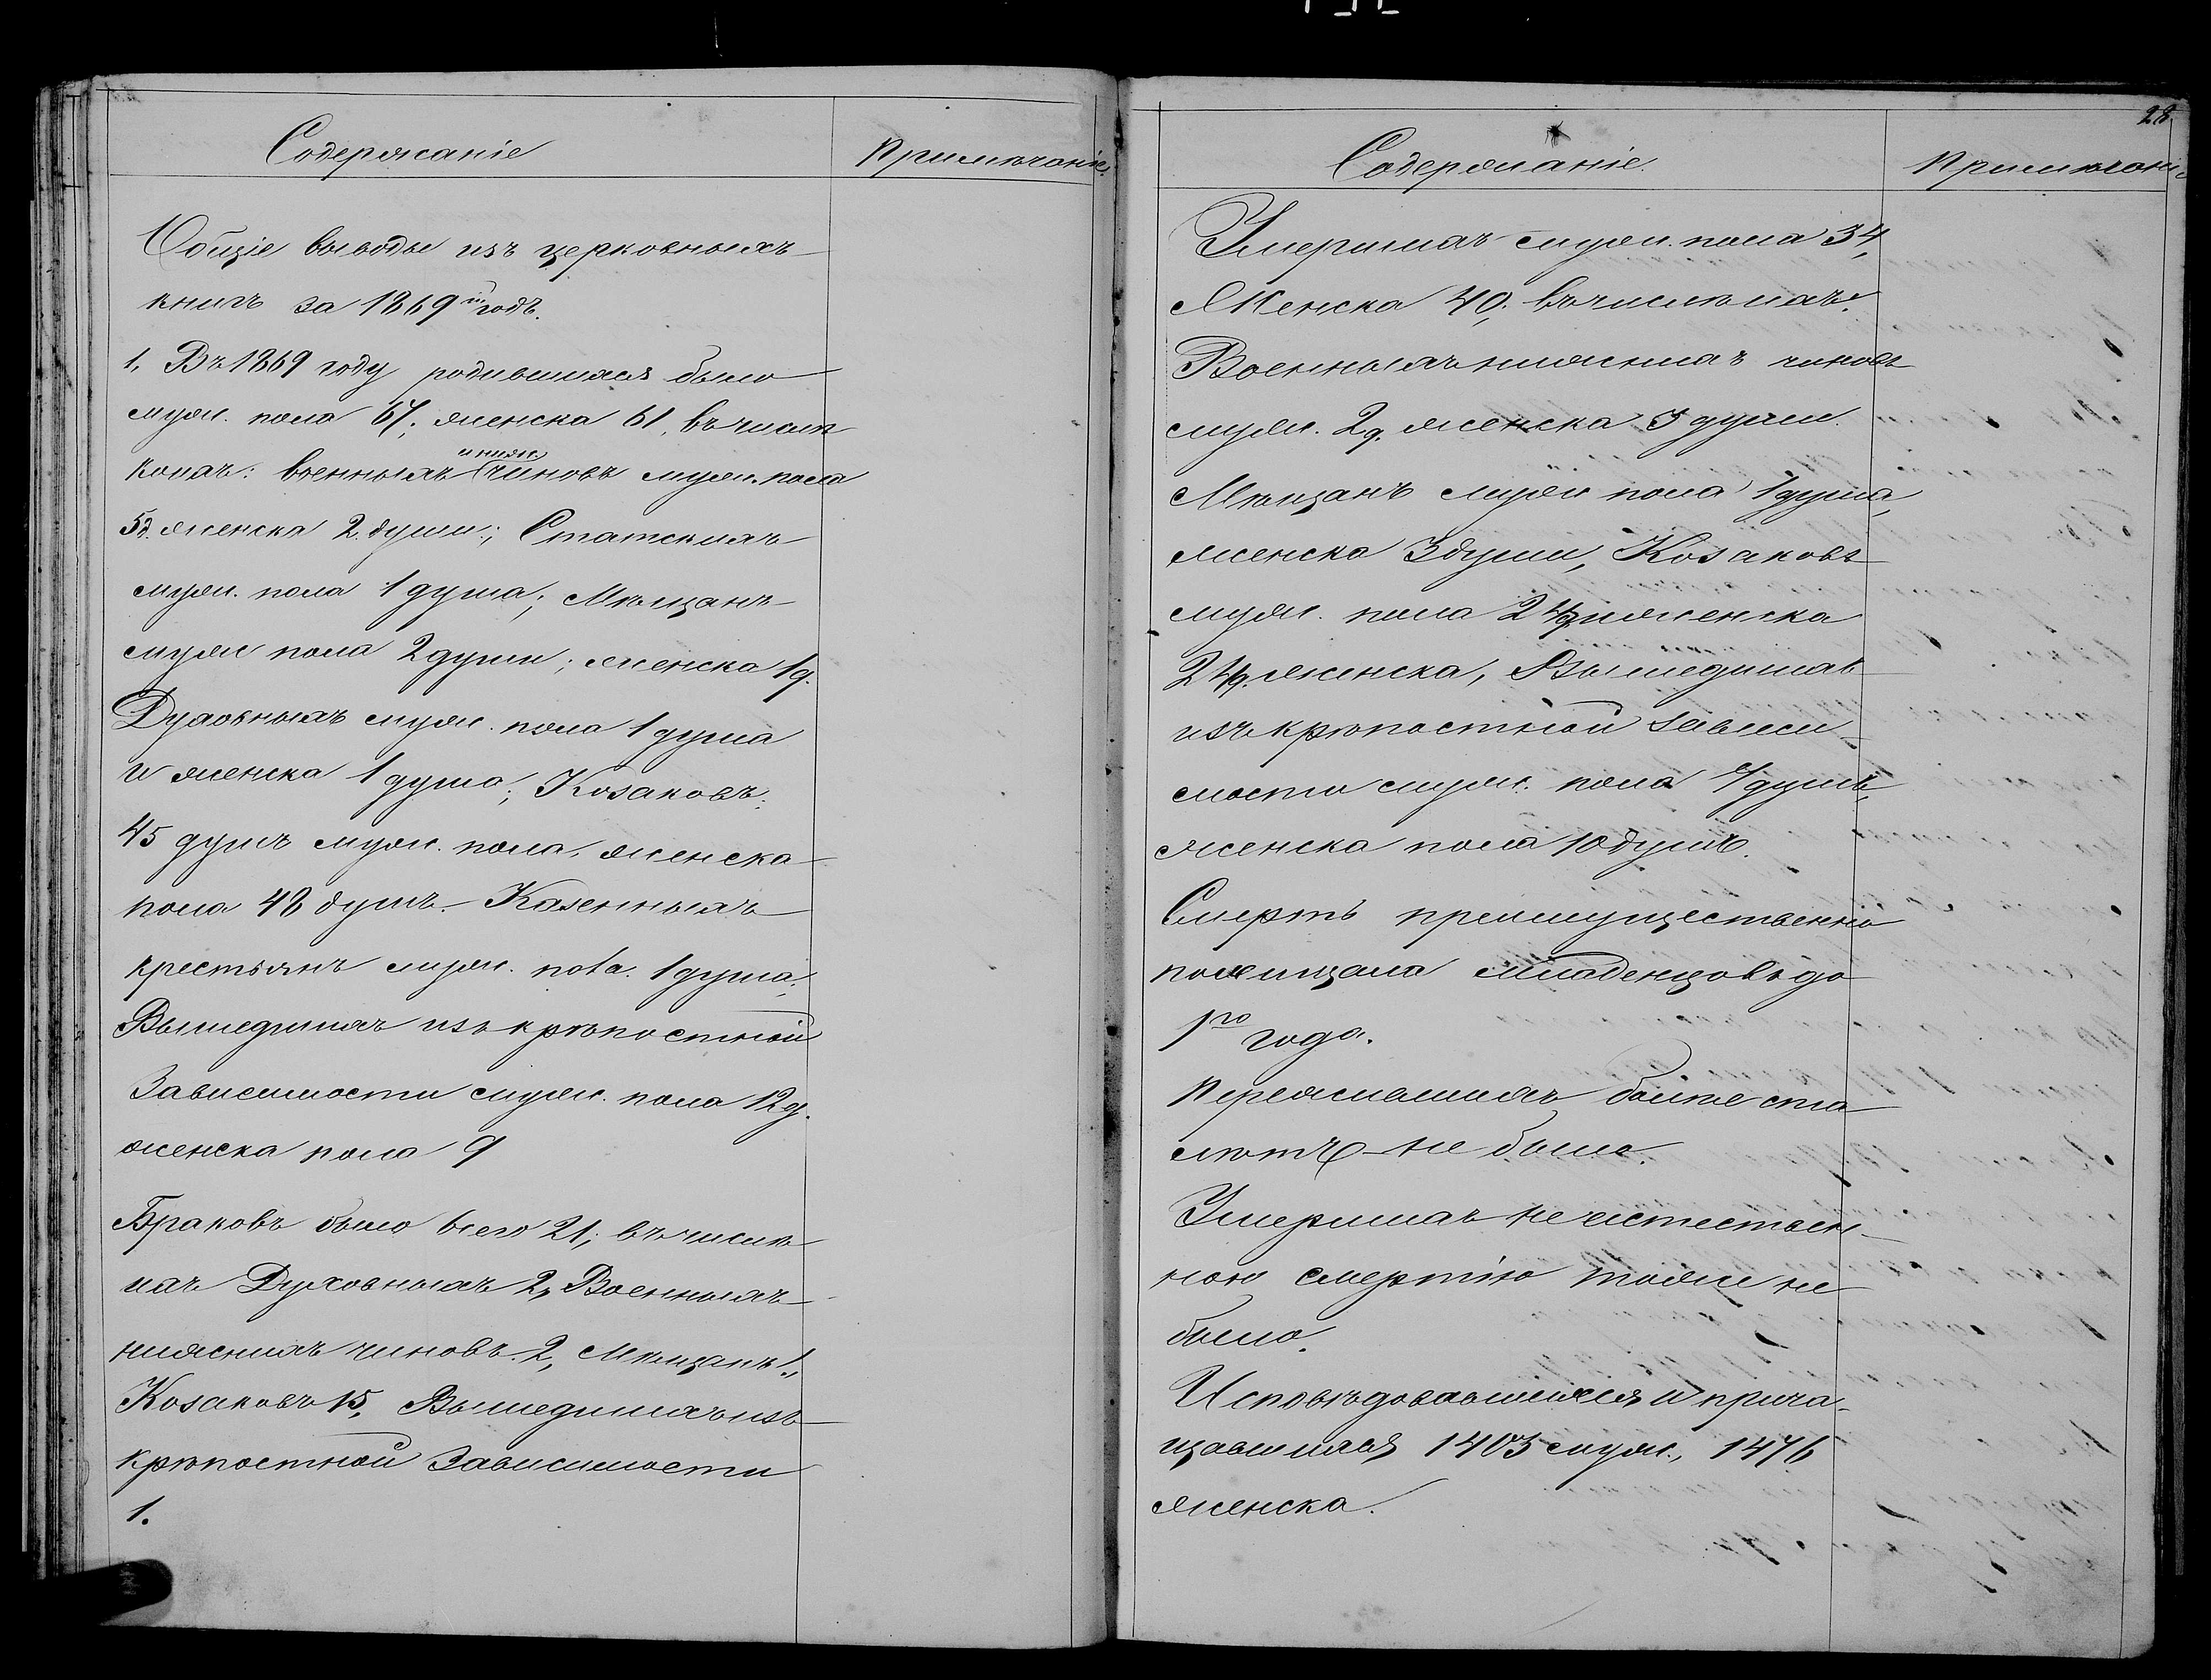 Содержаніе
Примѣчаніе.
Общіе выводы изъ церковныхъ
книгъ за 1869й годъ.
1, Въ 1869 году родившихся было
муж. пола 67, женска 61, въ числѣ
коихъ: военныхъ нижн. чиновъ муж. пола
5д. женска 2. души; Статскихъ
муж. пола 1 душа; Мѣщанъ
муж пола 2 души; женска 1 д.
Духовныхъ муж. пола 1 душа
и женска 1 душа; Козаковъ:
45 душъ муж. пола, женска
пола 48 душъ. Казенныхъ
крестьянъ муж. пола. 1 душа;
Вышедшихъ изъ крѣпостной
Зависимости муж. пола 12 д.
женска пола 9
Браковъ было всего 21; въ числѣ
ихъ Духовныхъ 2, Военныхъ
нижнихъ чиновъ. 2, Мѣщанъ 1.,
Козаковъ 15, Вышедшихъ изъ
крѣпостной Зависимости
1.
28
Содержаніе.
Примѣчані
Умершихъ муж. пола 34,
Женска 40, въ числѣ ихъ:
Военныхъ нижнихъ чиновъ
муж. 2 д. женска 3 души.
Мѣщанъ муж пола 1 душа,
женска 3 души, Козаковъ
муж. пола 24 женска
24 д. женска, Вышедшихъ
изъ крѣпостной зависи
мости муж. пола 7 душъ,
женска пола 10 душъ.
Смерть преимущественно
похищала младенцовъ до
1го года.
Переживших болѣе ста
лѣтъ не было.
Умершихъ не естествен
ною смертію тоже не
было.
Исповѣдовавшихся и прича
щавшихся 1403 муж., 1476
женска.